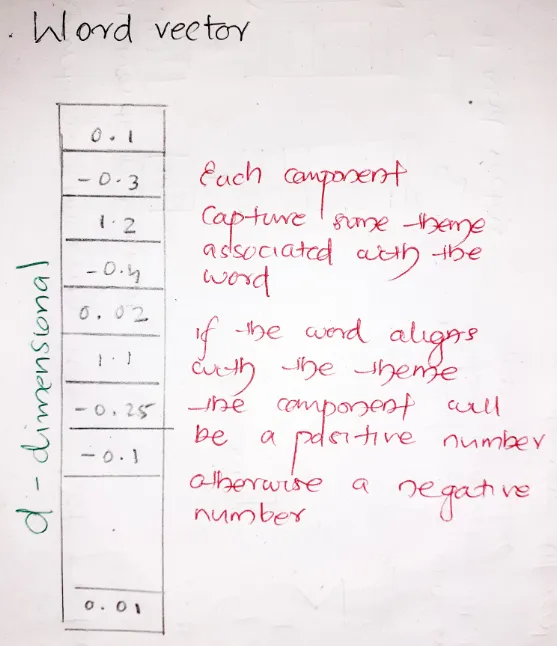 . Word vector
0.1
-0.3
1.2
-0.4
0.02
1.1
-0.25
-0.1
0.01
d-dimensional
Each component
Capture some theme
associated with the
word
if the word aligns
with the theme
the component will
be a positive number
otherwise a negative
number